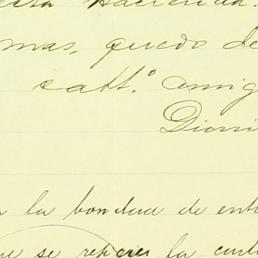 esta Hacienda.
mas, quedo de
satt.° amig
Dioni
la bondad de ent
se refiere la cart